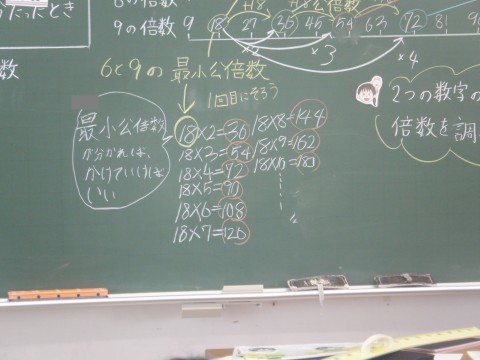 9の倍数 9 18 27 36 45 54 63 72 81
×2
×3
×4
6と9の最小公倍数
1回目にそろう
最小公倍数
が分かれば、
かけていけば
いい
18×2=36
18×3=54
18×4=72
18×5=90
18×6=108
18×7=126
18×8=144
18×9=162
2つの数字の
倍数を調